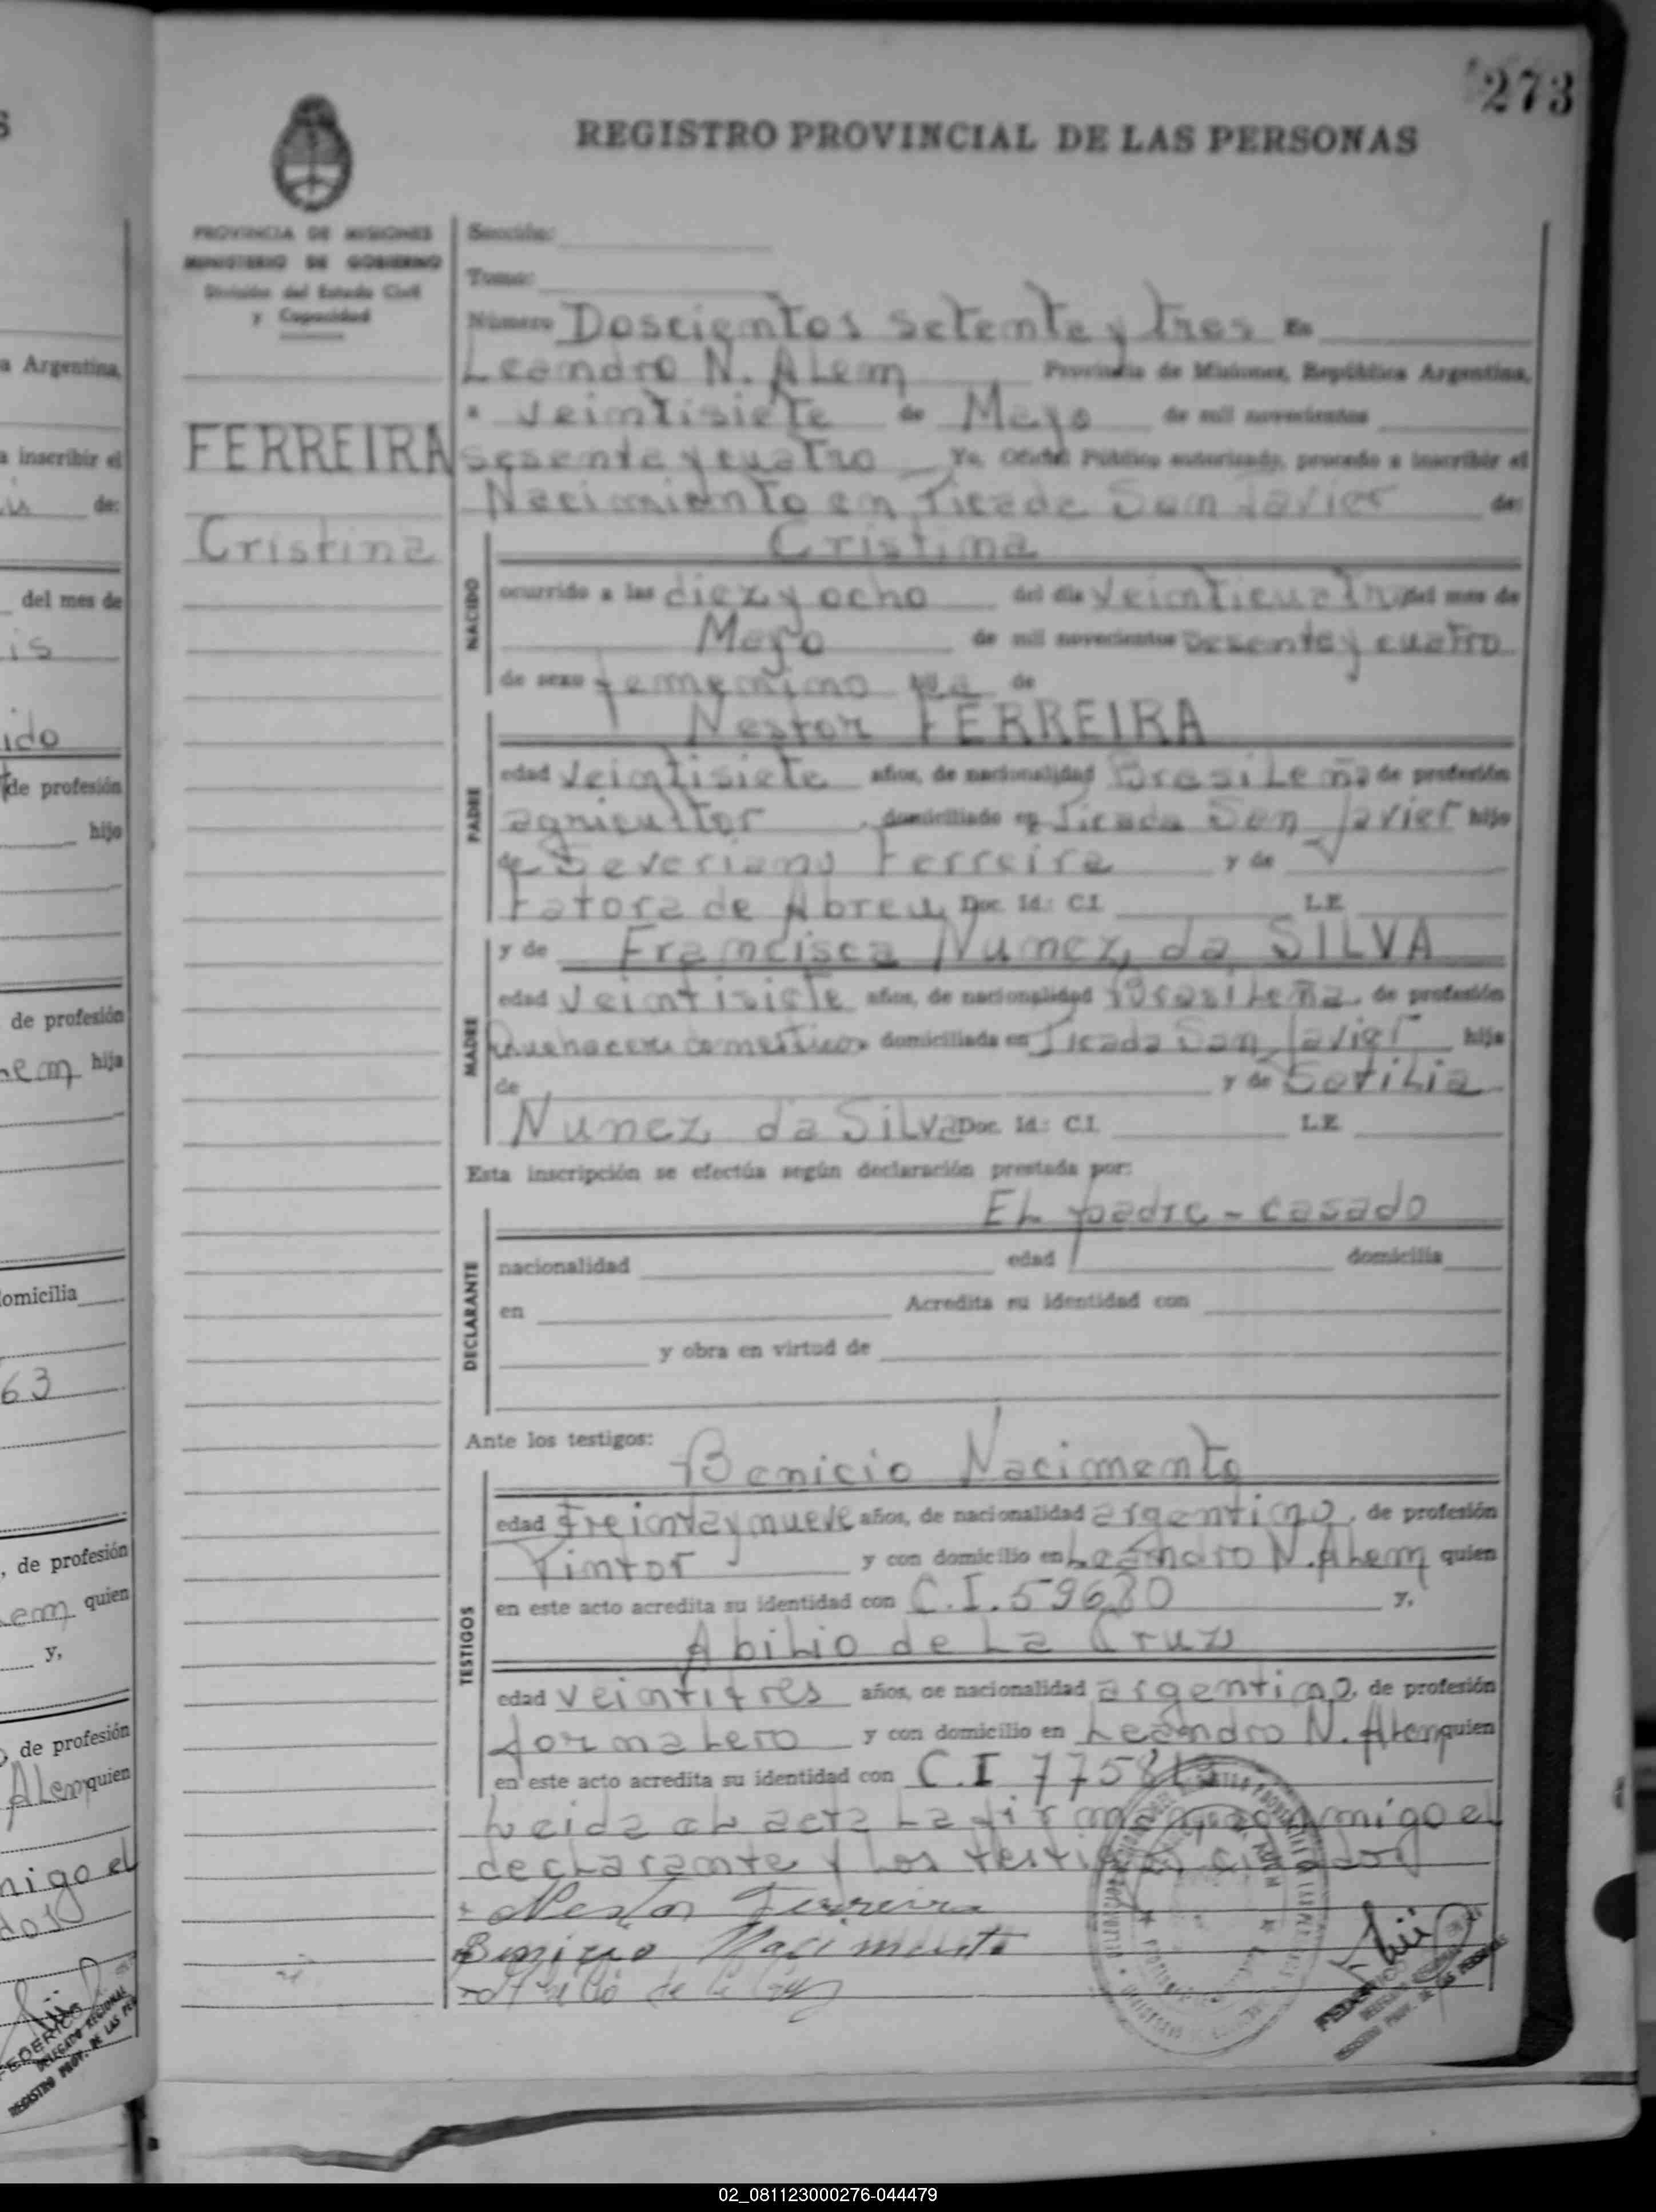 273
REGISTRO PROVINCIAL DE LAS PERSONAS
PROVINCIA DE MISIONES
MINISTERIO DE GOBIERNO
División del Estado Civil
y Capacidad
FERREIRA
Cristina
Sección:
Tomo:
Número Doscientos setenta y tres En
Leandro N. Alem Provincia de Misiones, República Argentina,
a veintisiete de Mayo de mil novecientos
sesenta y cuatro Yo, Oficial Público autorizado, procedo a inscribir el
Nacimiento en Picada San Javier de:
NACIDO
Cristina
ocurrido a las diez y ocho del día veinticuatro del mes de
Mayo de mil novecientos sesenta y cuatro
de sexo femenino de
PADRE
Nestor FERREIRA
edad veintisiete años, de nacionalidad Brasileña de profesión
agricultor domiciliado en Picada San Javier hijo
de Severiano Ferreira y de
Fatora de Abreu Doc. Id.: C.I. L.E.
MADRE
y de Francisca Nunez da SILVA
edad veintisiete años, de nacionalidad Brasileña, de profesión
Quehaceres domesticos domiciliada en Picada San Javier hija
de y de
Nunez da Silva Doc. Id.: C.I. L.E.
Esta inscripción se efectúa según declaración prestada por:
DECLARANTE
El padre - casado
nacionalidad edad domicilia
en Acredita su identidad con
y obra en virtud de
Ante los testigos:
TESTIGOS
Benicio Nacimento
edad treinta y nueve años, de nacionalidad argentino, de profesión
Pintor y con domicilio en Leandro N. Alem quien
en este acto acredita su identidad con C.I. 59680 y,
Abilio de La Cruz
edad veintitres años, de nacionalidad argentino, de profesión
jornalero y con domicilio en Leandro N. Alem quien
en este acto acredita su identidad con C.I
Leida el acta La firman conmigo el
declarante y Los testigos citados
Nestor Ferreira
Benicio Nacimento
de la Cruz
a Argentina,
a inscribir el
de:
del mes de
de profesión
hijo
de profesión
hija
domicilia
63
, de profesión
quien
y,
de profesión
Alem quien
migo el
FEDERICO
DELEGADO REGIONAL
REGISTRO PROV. DE LAS PER
02_081123000276-044479